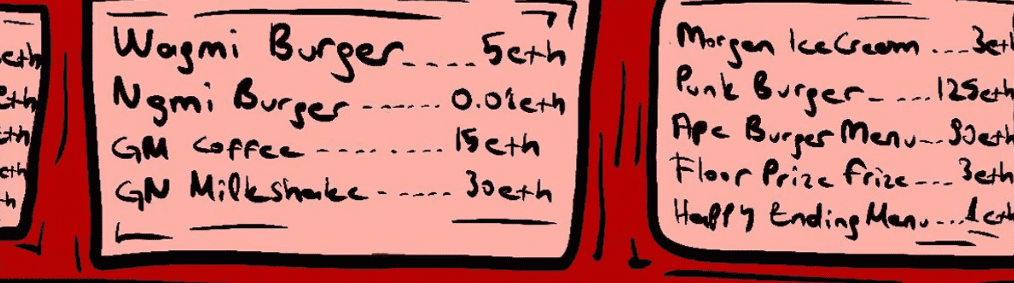 eth
eth
eth
eth
th
Wagmi Burger.....5eth
Ngmi Burger ------ 0.01eth
GM Coffee --------- 15eth
GN Milkshake ------ 30eth
Morgen IceCream ...3eth
Punk Burger-....125eth
Ape Burger Menu--90eth
Floor Prize Frize---3eth
Happy Ending Menu...1eth